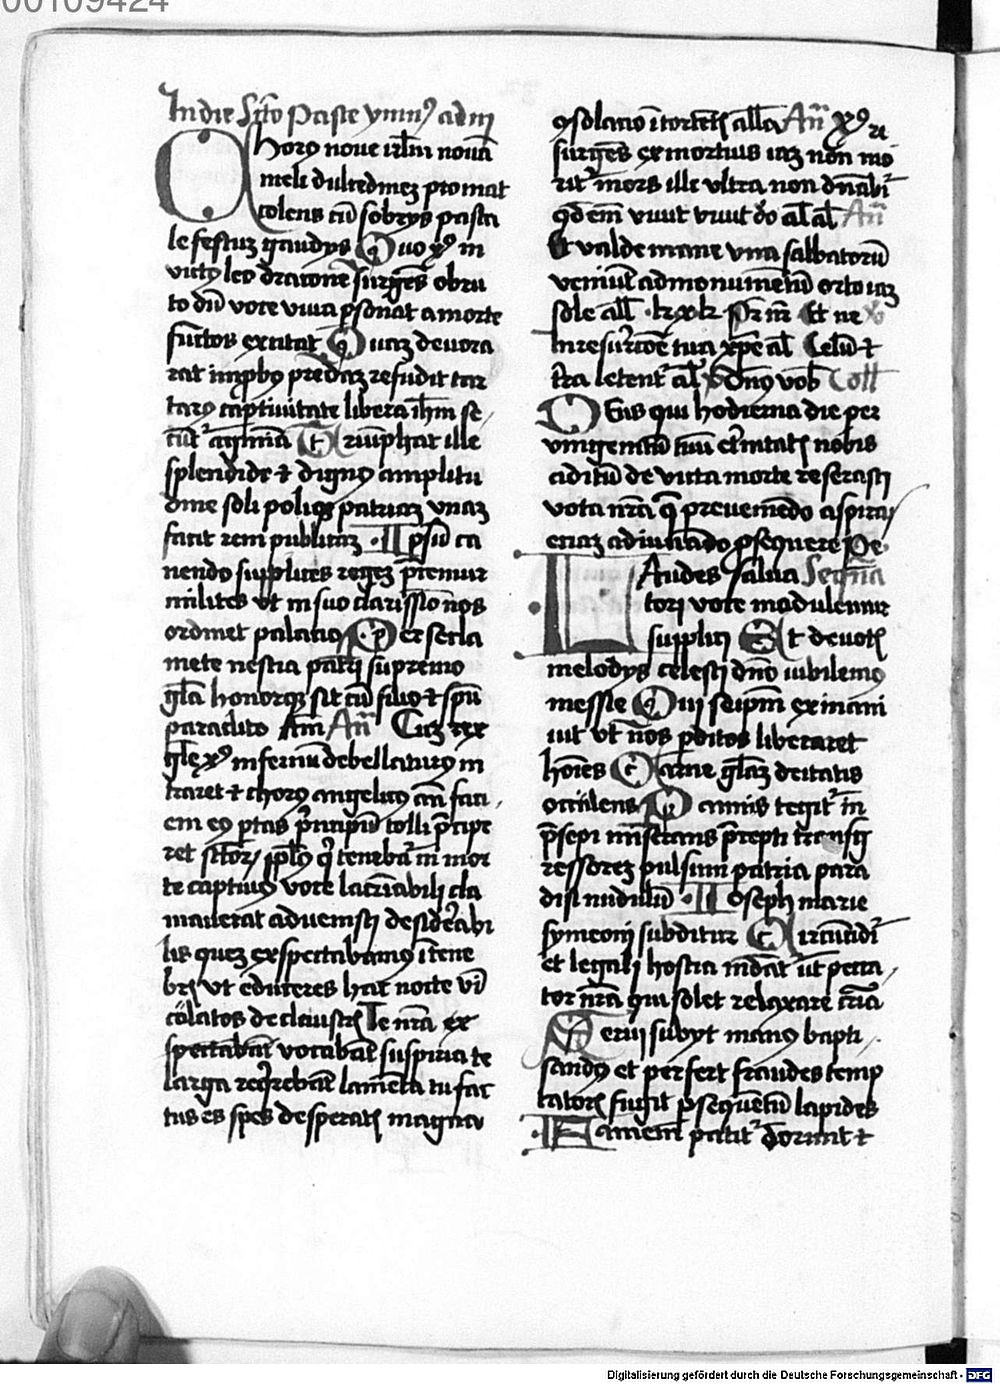 00109424
In die Scto Pasce ymnus ad m
Chorus noue irlm nouā
meli dulcedinez promat
colens cū sobrijs pasca
le festuz gaudijs Quo xps in
victus leo draconē surgēs obru
to dū voce viua psonat a morte
functos excitat Quaz deuora
rat improbus predaz refudit tar
tarus captiuitate libera ihm se
cūt' agmīa Triūphat ille
splendide et dignus amplitu
dine soli polique patriaz vnaz
facit rem publicaz Ipsū ca
nendo supplices regez p̄cemur
milites vt in suo clarissīo nos
ordinet palacio Per secla
mete nescia patri supremo
glā honorque sit cū filio et spū
paraclito Am Añ Cuz rex
glē xps infernū debellaturus in
traret et chorus angelicus an̄ faci
em eius ptas p̄ncipū tolli p̄cipe
ret sctorum ppls q̇ tenebat' in mor
te captiuus voce lacrīabili cla
mauerat aduenisti desiderabi
lis quez exspectabamus ī tene
bris vt educeres hac nocte vī
cūlatos de claustris Te nr̄a ex
spectabāt vocabāt suspiria te
larga reqrebāt lamēta tu fac
tus es spes desperatis magna
9solacio ī tormētis alla Añ Xps re
surgēs ex mortuis iaz non mo
rit' mors illi vltra non dn̄abit'
qd em̄ viuit viuit deo al al Añ
Et valde mane vna sabbatorū
veniūt ad monumentū orto iaz
sole all kx kz Pr nr̄ Et ne V
In resurcōe tua xpe al Celū et
t'ra letent' al V Dn̄s vob Coll
DEus qui hodierna die per
vnigenitū tuū et'nitatis nobis
aditū de victa morte reserasti
vota nr̄a q̄ preueniēdo aspiras
eciaz adiuuādo psequere Pe
LAudes salua Seqn̄cia
tori voce modulemur
supplici Et deuotis
melodijs celesti dn̄o iubilemus
messie Qui seipm exinani
uit vt nos pditos liberaret
hoīes Carne glāz deitatis
occulens Pannis tegit' in
p̄sepi miserans p̄cepti transg
ressorez pulsum patria para
disi nudulū Ioseph marie
symeoni subditur Circūcidit'
et legali hostia mūdat' ut pecca
tor nr̄a qui solet relaxare crīa
Serui subyt manus bapti
sandus et perfert fraudes temp
tatoris fugit psequētū lapides
Famem patit' dormit et
Digitalisierung gefördert durch die Deutsche Forschungsgemeinschaft - DFG